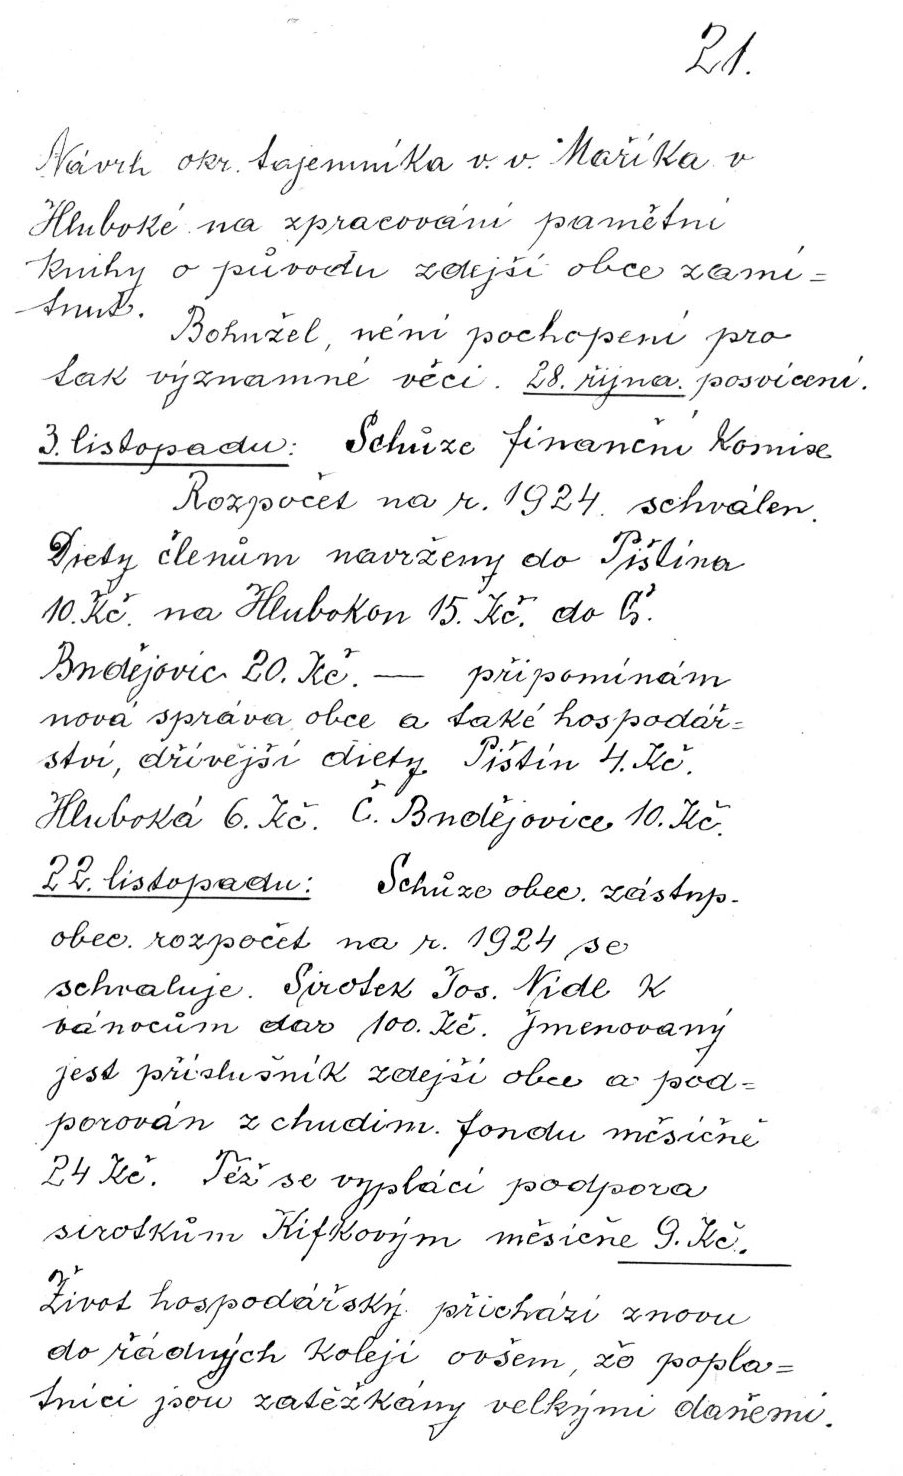 21.
Návrh okr. tajemníka v. v. Maříka v
Hluboké na zpracování pamětní
knihy o původu zdejší obce zamí=
tnut.
Bohužel, néní pochopení pro
tak význammé věci. 28. řijna. posvícení.
3. listopadu: Schůze finanční Komise
Rozpočet na r. 1924. schválen.
Diety členům navrženy do Pištína
10. Kč. na Hlubokou 15. Kč. do Č.
Budějovic 20. Kč. — připomínám
nová správa obce a také hospodář=
ství, dřívější diety Pištín 4. Kč.
Hluboká 6. Kč. Č. Budějovice 10. Kč.
22. listopadu: Schůze obec. zástup.
obec. rozpočet na r. 1924 se
schvaluje. Sirotek Jos. Nidl k
vánocům dar 100. Kč. Jmenovaný
jest příslušník zdejší obce a pod=
porován z chudim. fondu měsíčně
24 Kč. Též se vyplácí podpora
sirotkům Kifkovým měsíčne 9. Kč.
Život hospodářský přichází znovu
do řádných kolejí ovšem, že popla=
tníci jsou zatěžkány velkými daňemi.